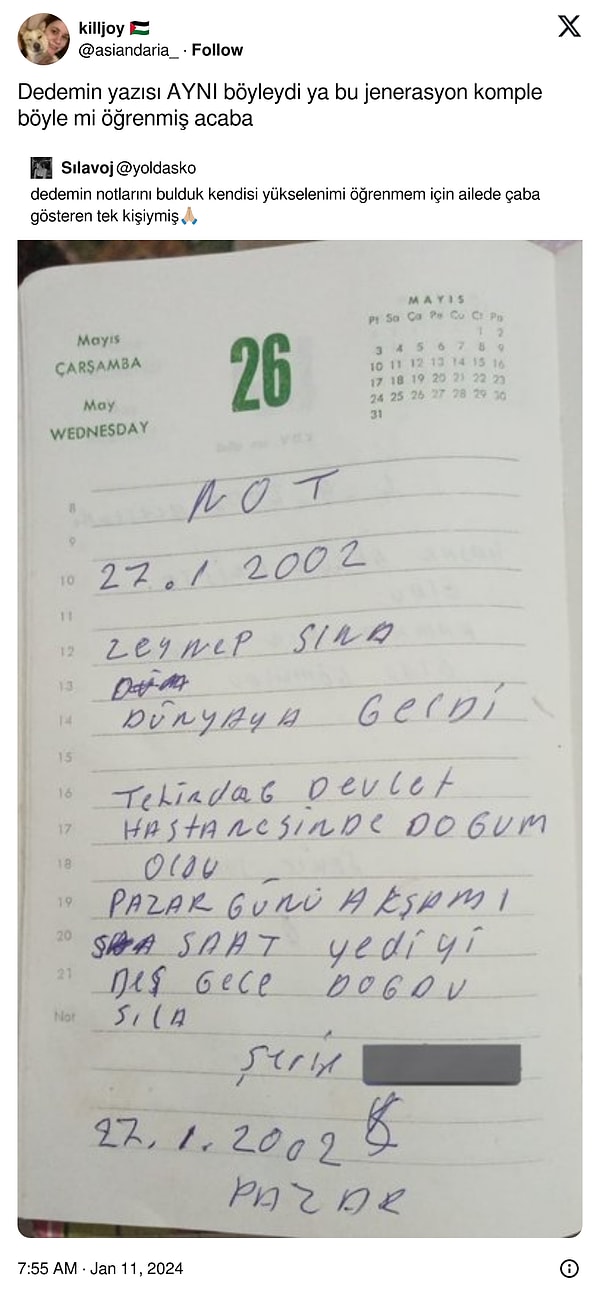 killjoy 🇵🇸
@asiandaria_ · Follow
Dedemin yazısı AYNI böyleydi ya bu jenerasyon komple
böyle mi öğrenmiş acaba
Sılavoj @yoldasko
dedemin notlarını bulduk kendisi yükselenimi öğrenmem için ailede çaba
gösteren tek kişiymiş🙏🏻
Mayıs
ÇARŞAMBA
May
WEDNESDAY
26
MAYIS
Pt Sa Ça Pe Cu Ct Pa
1 2
3 4 5 6 7 8 9
10 11 12 13 14 15 16
17 18 19 20 21 22 23
24 25 26 27 28 29 30
31
8 NOT
9
10 27.1 2002
11
12 ZEYNEP SILA
13
14 DÜNYAYA GELDİ
15
16 TEKİRDAG DEVLET
17 HASTANESİNDE DOGUM
18 OLDU
19 PAZAR GÜNÜ AKŞAMI
20 SAAT yediyi
21 BEŞ GECE DOGDU
Not SILA
27.1.2002
PAZAR
7:55 AM · Jan 11, 2024